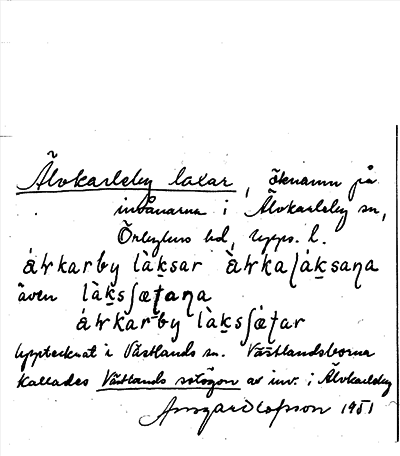 Älvkarleby laxar, öknamn på
invånarna i Älvkarleby sn,
Örbyhus hd, Upps. l.
áɫvkarby làksar àɫvkaḷàksaṇa
även làksʃæṭaṇa
áɫvkarby làksʃæ̀ṭar
Upptecknat i Västlands sn. Västlandsborna
kallades Västlands sotögon av inv. i Älvkarleby
Ansgar Olofsson 1951